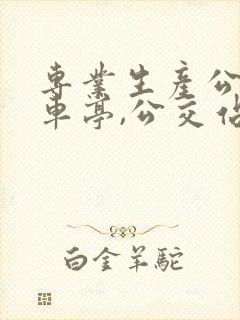 專業生產公
車亭,公交佔
白金羊駝